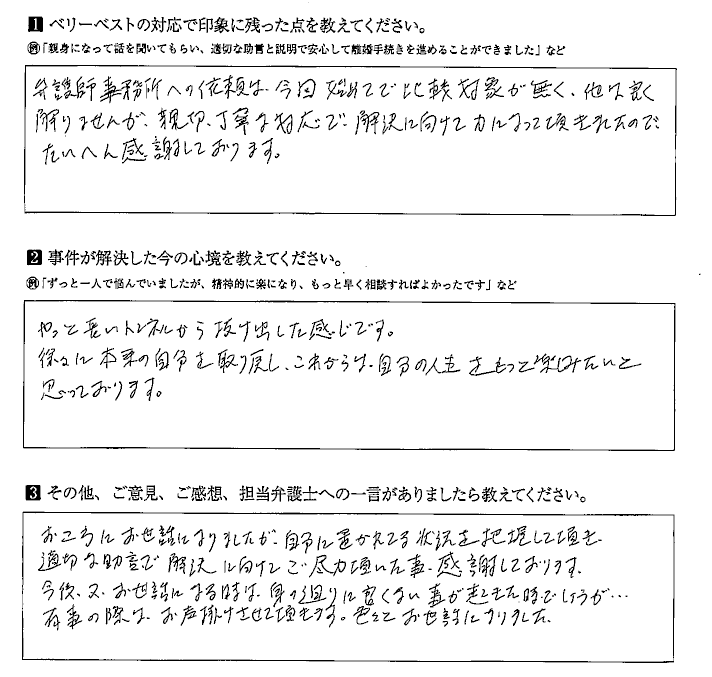 1 ベリーベストの対応で印象に残った点を教えてください。
例「親身になって話を聞いてもらい、適切な助言と説明で安心して離婚手続きを進めることができました」など
弁護師事務所への依頼は、今回始めてで比較対象が無く、他は良く
解りませんが、親切、丁寧な対応で、解決に向けて力になって頂きましたので、
たいへん感謝しております。
2 事件が解決した今の心境を教えてください。
例「ずっと一人で悩んでいましたが、精神的に楽になり、もっと早く相談すればよかったです」など
やっと長いトンネルから抜け出した感じです。
徐々に本来の自分を取り戻し、これからは、自分の人生をもっと楽しみたいと
思っております。
3 その他、ご意見、ご感想、担当弁護士への一言がありましたら教えてください。
お世話になりましたが、自分に置かれてる状況を把握して頂き
適切な助言で解決に向けてご尽力頂いた事、感謝しております。
今後、又、お世話になる時は、身の廻りに良くない事が起きた時でしょうが…
有事の際は、お声掛けさせて頂きます。色々とお世話になりました。